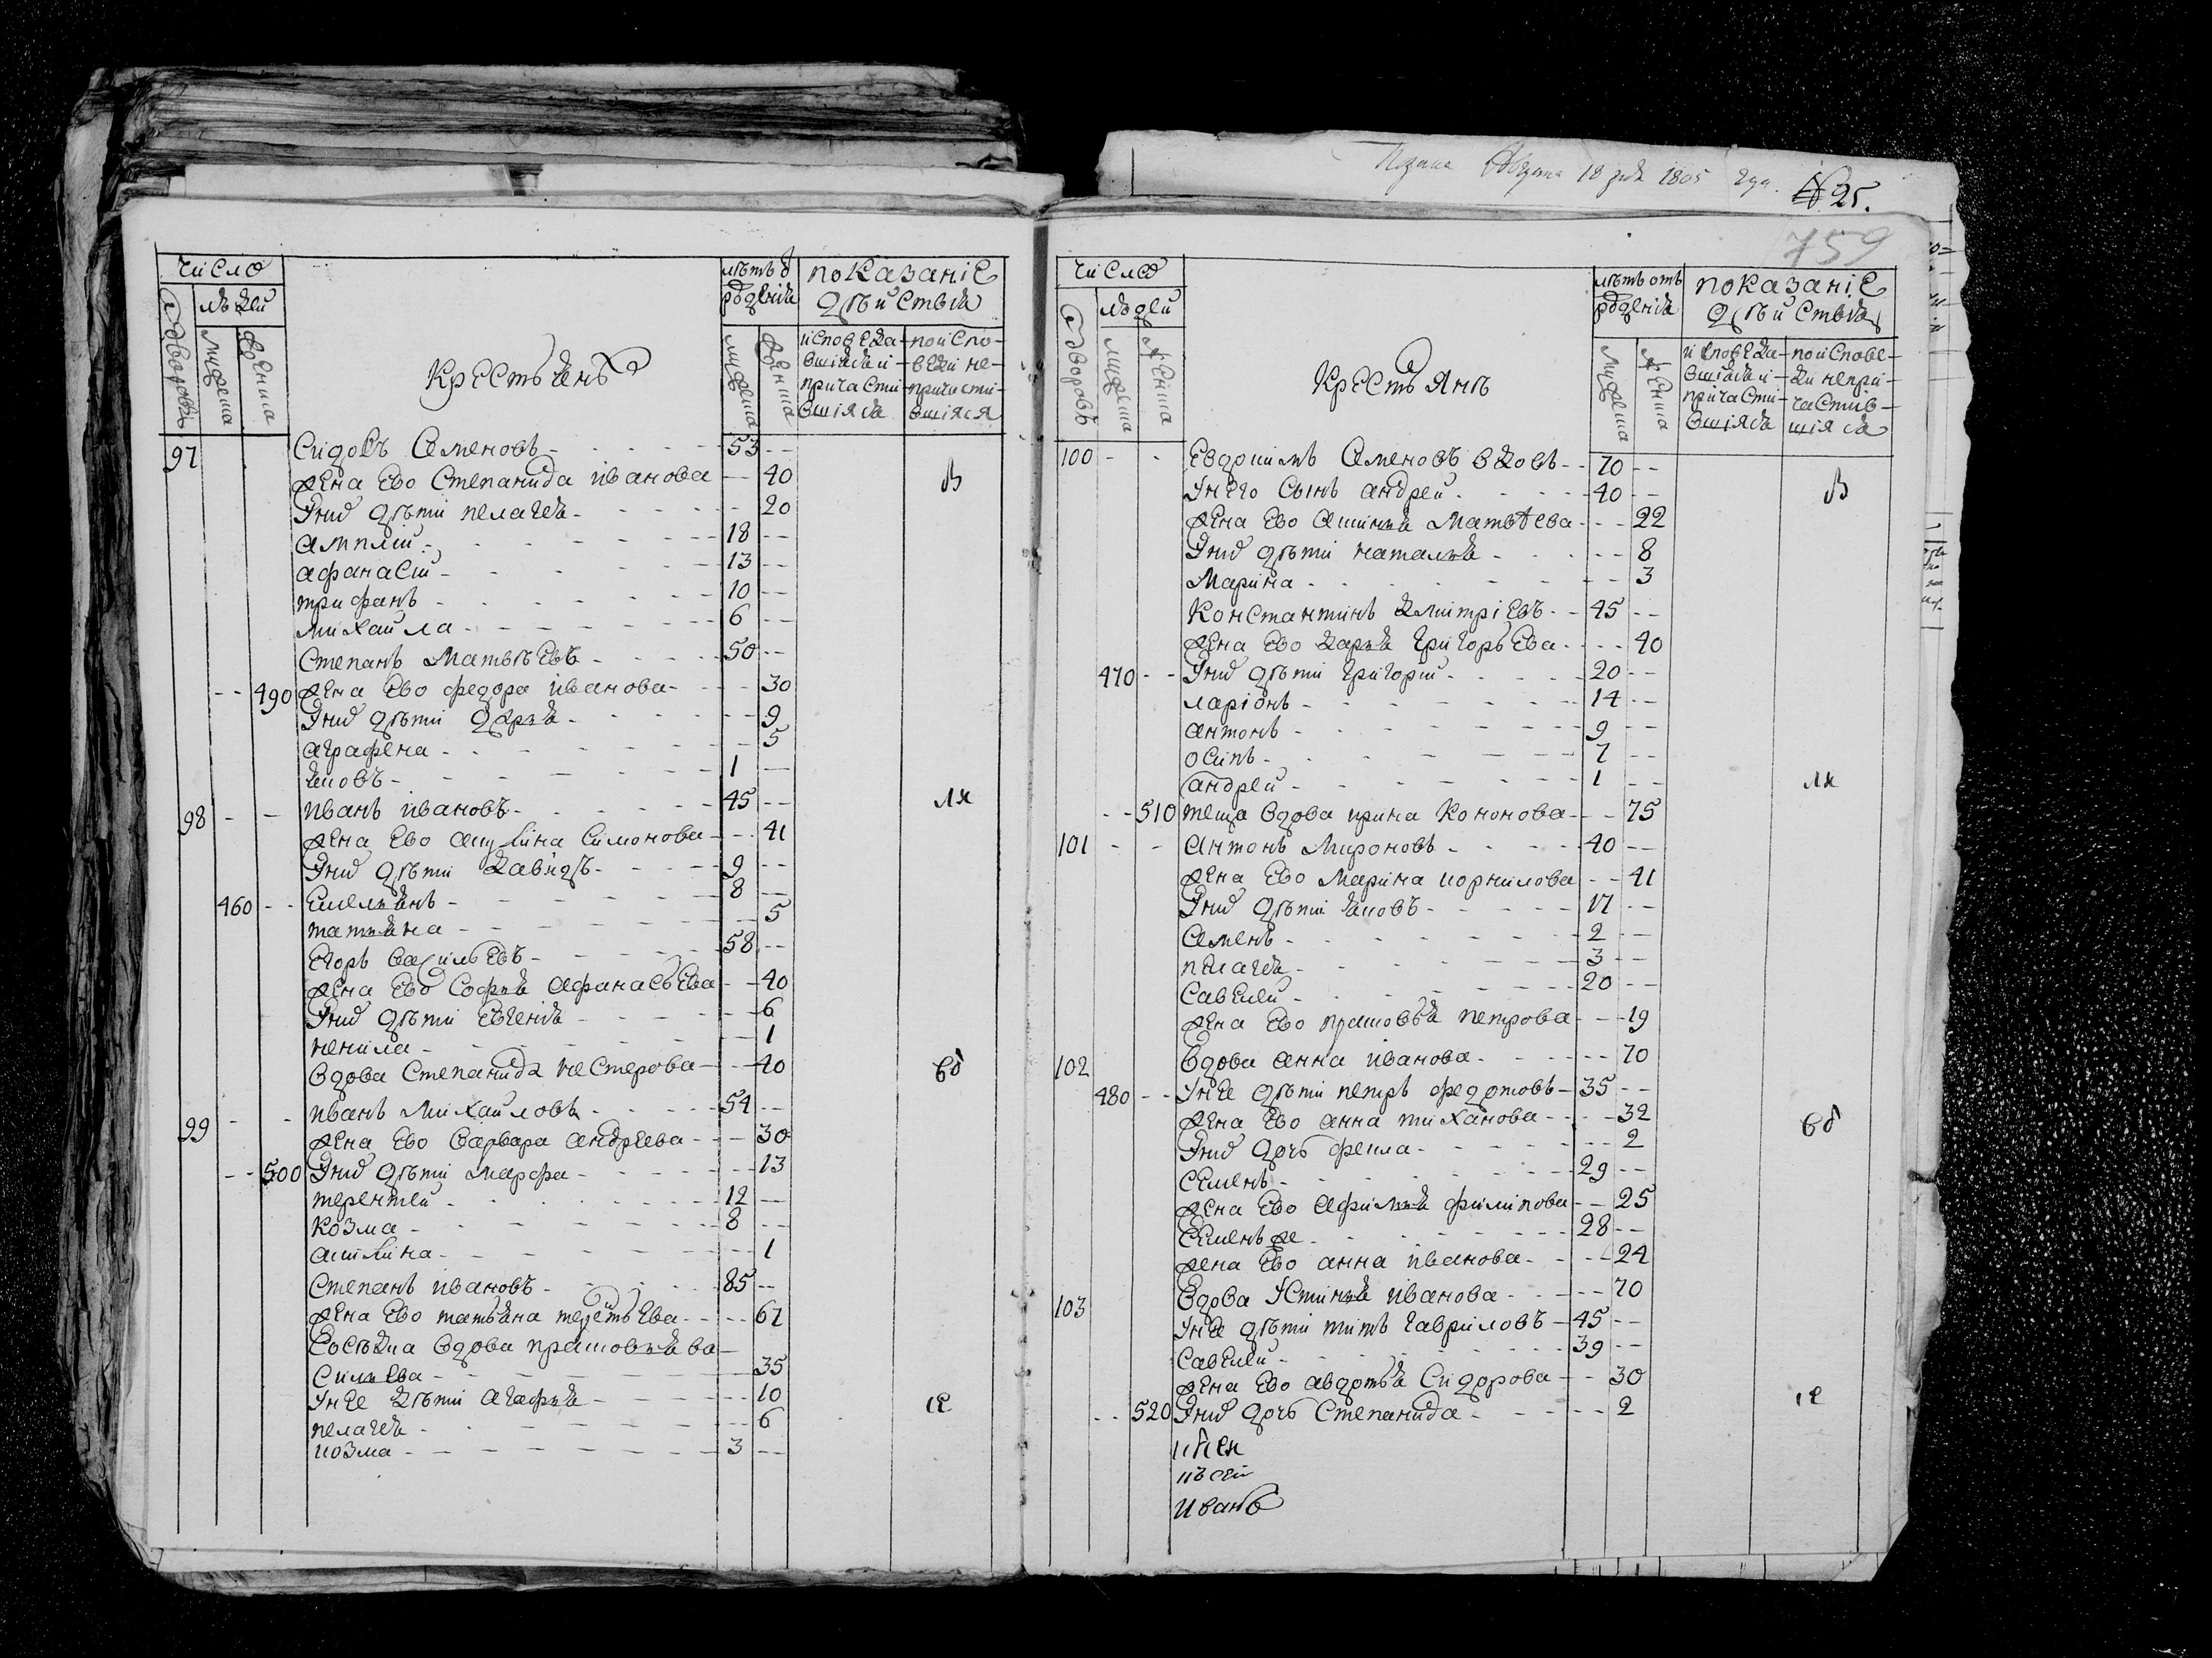 1805
№ 25.
759
число
людей
дворовъ
мужеска
женска
Крестьянъ
лѣтъ ѿ
рождениѧ
мужеска
женска
показаниЕ
дѣйствиѧ
исповеда-
вшиясѧ и
причасти-
вшиясѧ
по испо-
веди не-
причасти-
вшияся
97 Сидоръ Семеновъ 53
жена Ево Степанида иванова 40
У них дѣти пелагеѧ 20
амплии 18
афанасии 13
трифанъ 10
михаила 6
Степанъ Матвѣевъ 50
490 жена Ево федора иванова 30
У них дѣти дарьѧ 9
аграфена 5
ѧковъ 1
98 иванъ ивановъ 45
жена Ево Симонова 41
У них дѣти давидъ 9
460 Емельѧнъ 8
татьѧна 5
Егоръ васильЕвъ 58
жена Ево Софьѧ афанасьЕва 40
У них дѣти Евгениѧ 6
ненила 1
вдова Степанида нестерова 40
99 иванъ михаиловъ 54
жена Ево варвара андрЕева 30
500 У них дѣти марфа 13
терентеи 12
козма 8
акилина 1
Степанъ ивановъ 85
жена Ево татьѧна терентьЕва 67
Соседка вдова прасковьѧ ва
сильЕва 35
У нЕе дѣти агафьѧ 10
пелагеѧ 6
козма 3
в
ля
вд
се
число
людей
дворовъ
мужеска
женска
Крестьянъ
лѣтъ отъ
рождениѧ
мужеска
женска
показаниЕ
дѣйствиѧ
исповеда-
вшиясѧ и
причасти-
вшиясѧ
по испове-
ди непри-
частив-
шиясѧ
100 Евдокимъ Семеновъ вдовъ 70
У него сынъ андреи 40
жена Ево аксиньѧ матвѣева 22
У них дѣти натальѧ 8
Марина 3
Константинъ дмитриЕвъ 45
жена Ево дарьѧ григорьЕва 40
470 У них дѣти григории 20
ларионъ 14
антонъ 9
осипъ 7
андреи 1
510 теща вдова ирина Кононова 75
101 антонъ мироновъ 40
жена Ево марина корнилова 41
У них дѣти ѧковъ 17
Семенъ 2
пелагеѧ 3
Савелеи 20
жена Ево прасковьѧ петрова 19
102 вдова анна иванова 70
480 У нЕе дѣти петръ федотовъ 35
жена Ево анна тиханова 32
У них дочь фекла 2
Семенъ 29
жена Ево афимьѧ филипова 25
Семенъ же 28
жена Ево анна иванова 24
103 вдова Устиньѧ иванова 70
У нЕе дѣти титъ гавриловъ 45
Савелеи 39
жена Ево авдотьѧ Сидорова 30
520 У них дочь Степанида 2
Иванъ
в
ля
вд
се